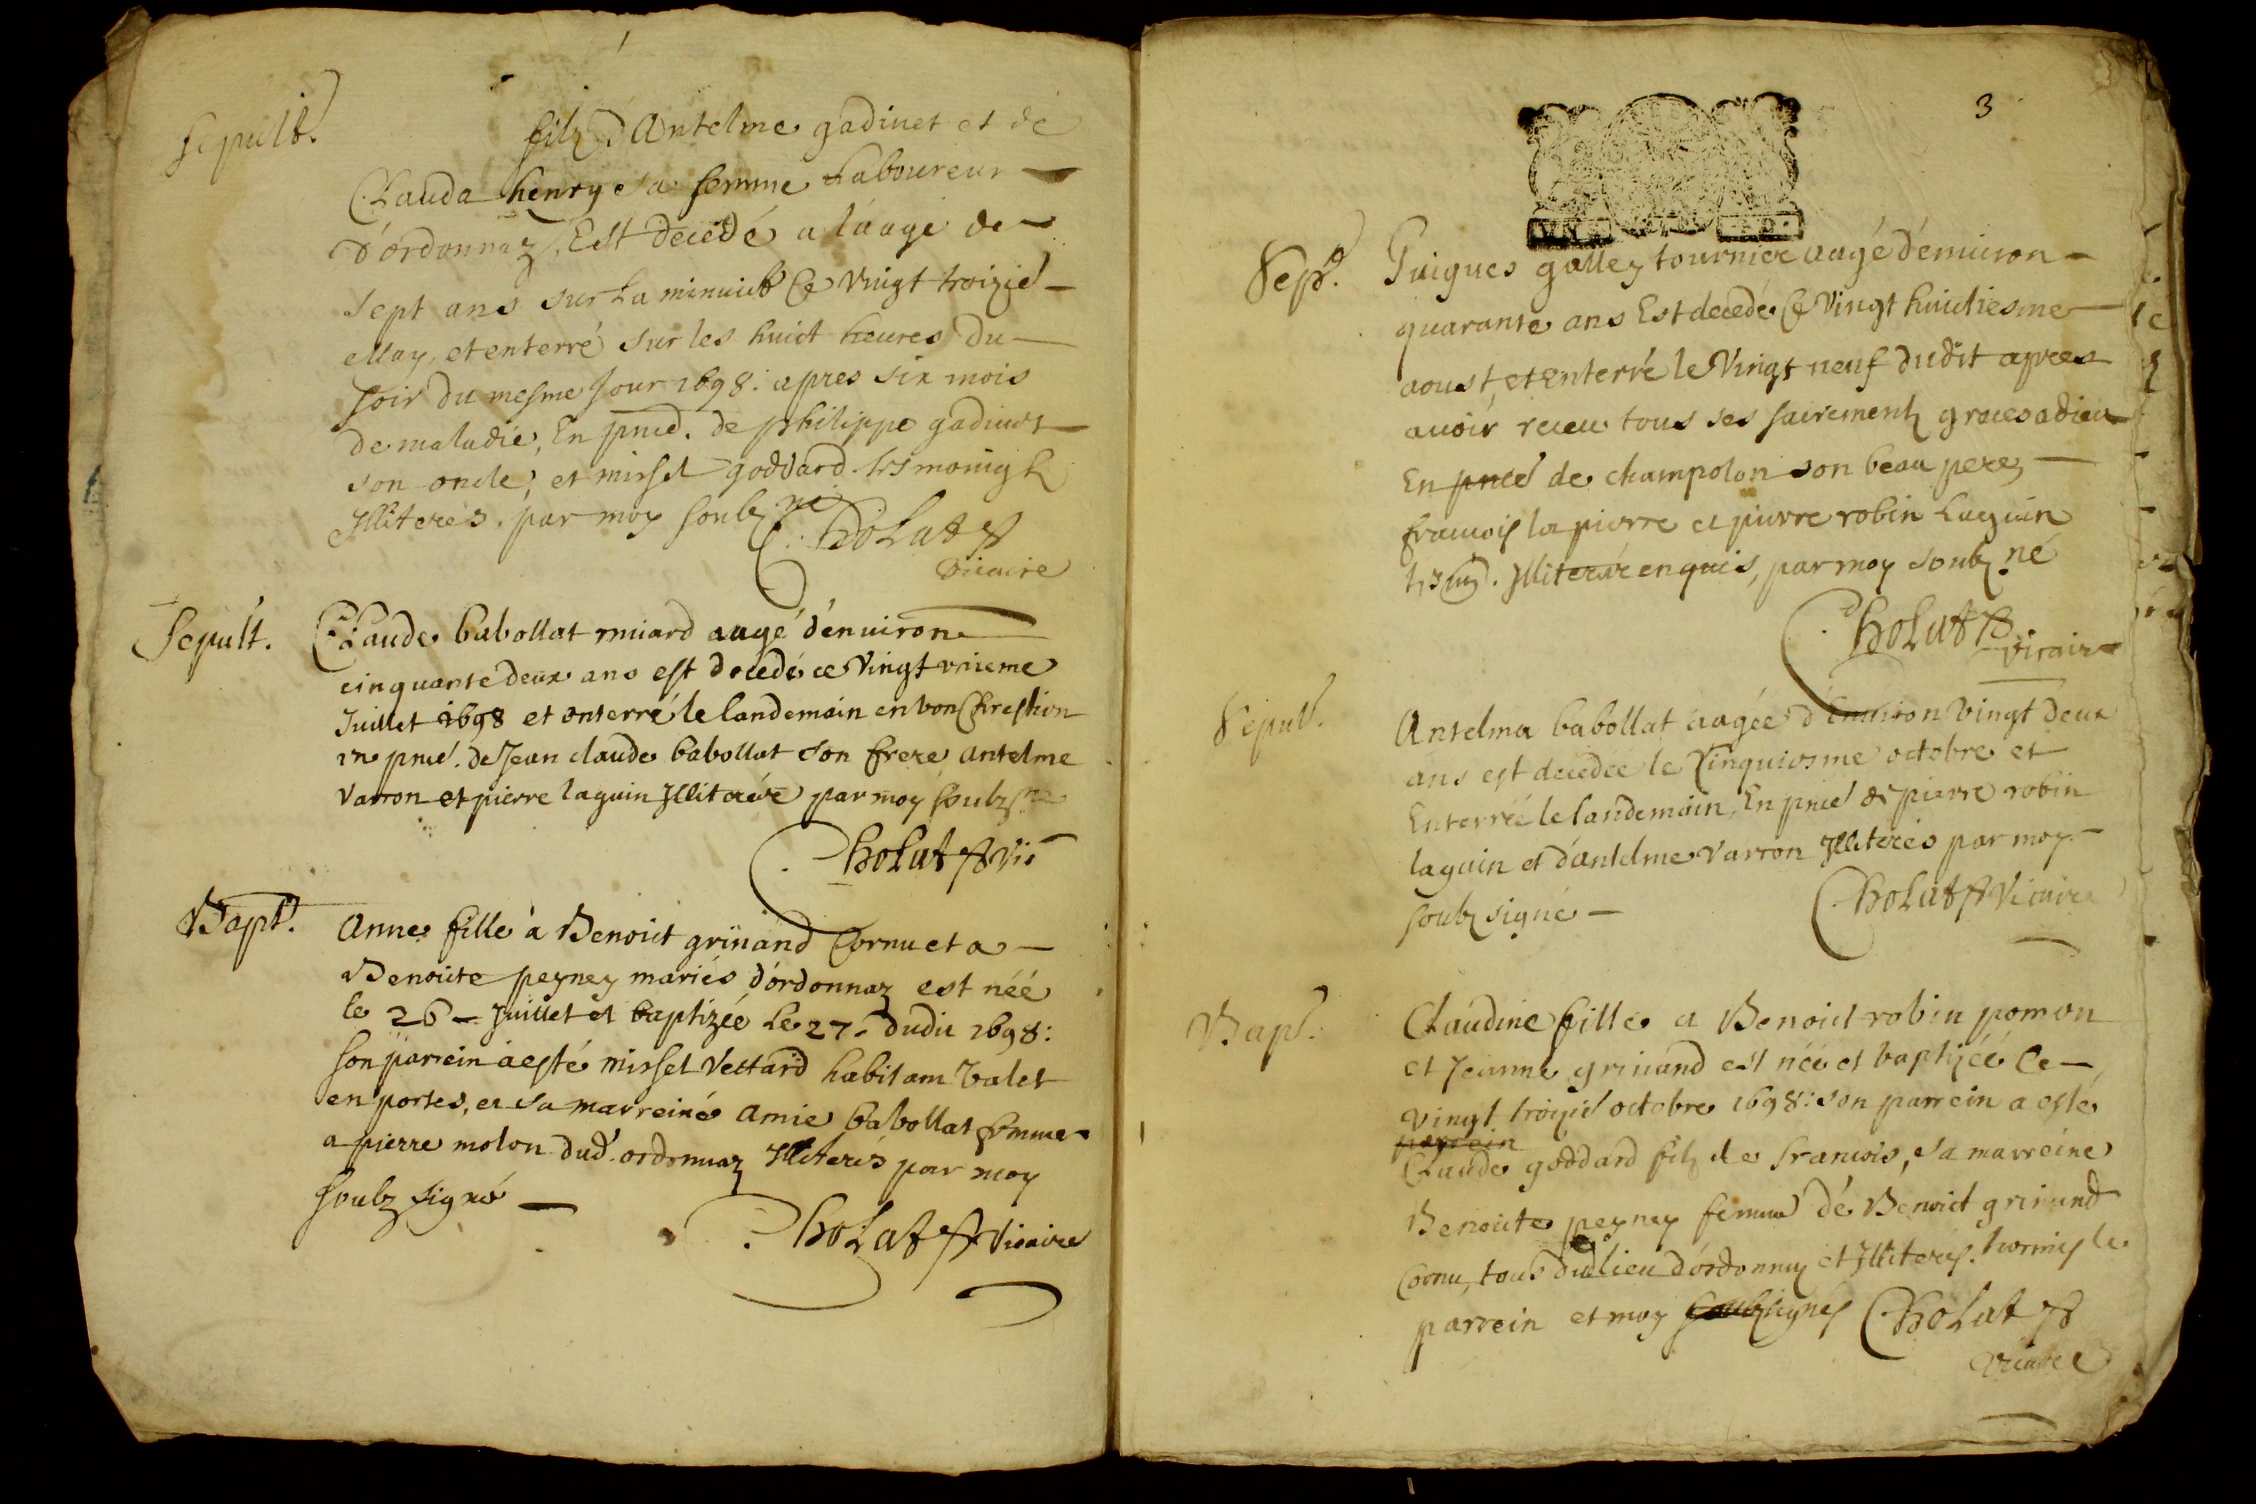 Sepult.
filz d'Antelme gadinet et de
Clauda henry sa femme Laboureur
d'ordonnaz, Est decedé a l'aage de
sept ans sur La minuict Ce vingt troizie
May, et enterré sur les huict heures du
soir du mesme Jour 1698: apres six mois
de maladie, En pnce. de philippe gadinet
son oncle, et missel goddard
Illiteres. par moy soubz né
Cholat
vicaire
Sepult.
Claude babollat miard aagé d'enuiron
cinquante deux ans est decedé ce Vingt
Juillet 1698 et enterré le landemain en bon Chrestien
in pnce. de Jean claude babollat son frere antelme
Varron et pierre laguin par moy soubz
Cholat Vic
Bapt.
Anne fille à Benoict grinand Cornu et a
Benoite peyney mariés d'ordonnaz est néé
le 26 Juillet et baptizéé le 27. dudit 1698:
son parrein a esté missel Vettard habitam Valet
en portes, et sa marreine Amie babollat femme
a pierre molon dud. ordonnaz Illiterés par moy
soubz signé
Cholat Vicaire
3
Sep.
Guigues galley tournier aagé d'enuiron
quarante ans Est decedé Ce Vingt huictiesme
aoust, et Enterré le Vingt neuf dudit apres
auoir receu tous ses sairementz graces a dieu
En pnce de champolon son beau pere,
francois la pierre et pierre robin Laguin
enquis, par moy soubz né
Cholat
vicaire
Sepult.
Antelma babollat aagée d'Enuiron Vingt deux
ans est decedee le Cinquiesme octobre et
Enterréé le landemain, En pnce de pierre robin
laguin et d'antelme Varron Illiterés par moy
soubz signé
Cholat Vicaire
Bapt.
Claudine fille a Benoict robin pomon
et Jeanne grinand est néé et baptizéé Ce
vingt troizie octobre 1698: son parrein a esté
parrein
Claude goddard filz de francois, sa marreine
Benoite peyney femme de Benoict grinand
Cornu, tous du lieu d'ordonnaz et Illiteres. hormis le
parrein et moy soubzsignes Cholat
vicaire